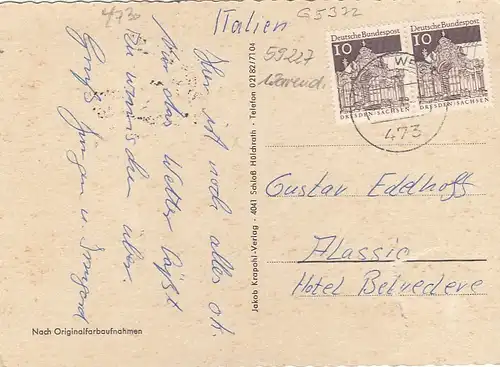 4730
Italien
G5372
59227
Warend.
Hier ist noch alles ok.
Nur das Wetter läßt
zu wünschen über.
Jürgen u. Irmgard
Nach Originalfarbaufnahmen
Jakob Krapohl-Verlag · 4041 Schloß Hülchrath · Telefon 02182/7104
Deutsche Bundespost
10
DRESDEN-SACHSEN
Deutsche Bundespost
10
DRESDEN-SACHSEN
473
Gustav Eddhoff
Alassio
Hotel Belvedere